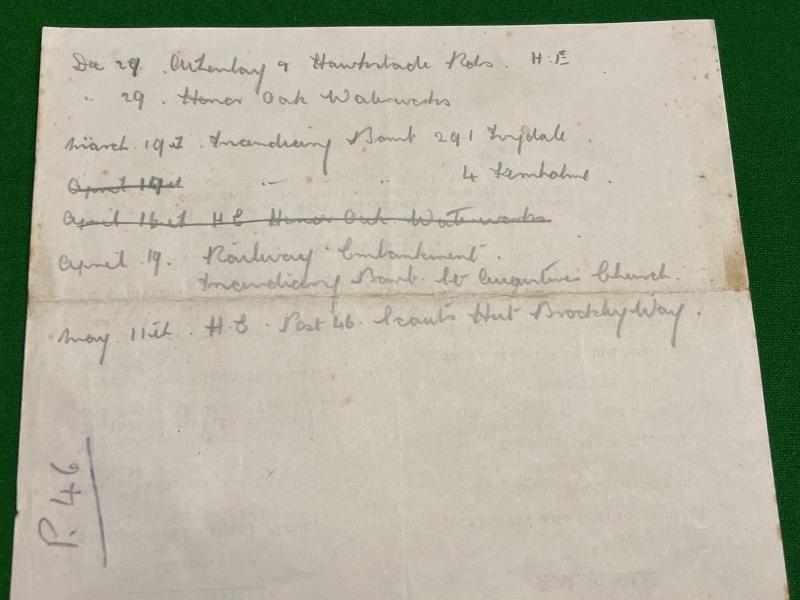 Dec 29 . Athenlay & Hawkslade Rds. H.E
" 29 . Honor Oak Waterworks
March 19th . Incendiary Bomb 291 Ivydale .
April 16th " " 4 Limholme .
April 16th H E Honor Oak Waterworks
April 19. Railway Embankment .
Incendiary Bomb. St Augustines Church.
May 11th . H.E . Post 46. Scouts Hut Brockley Way .
P. 46